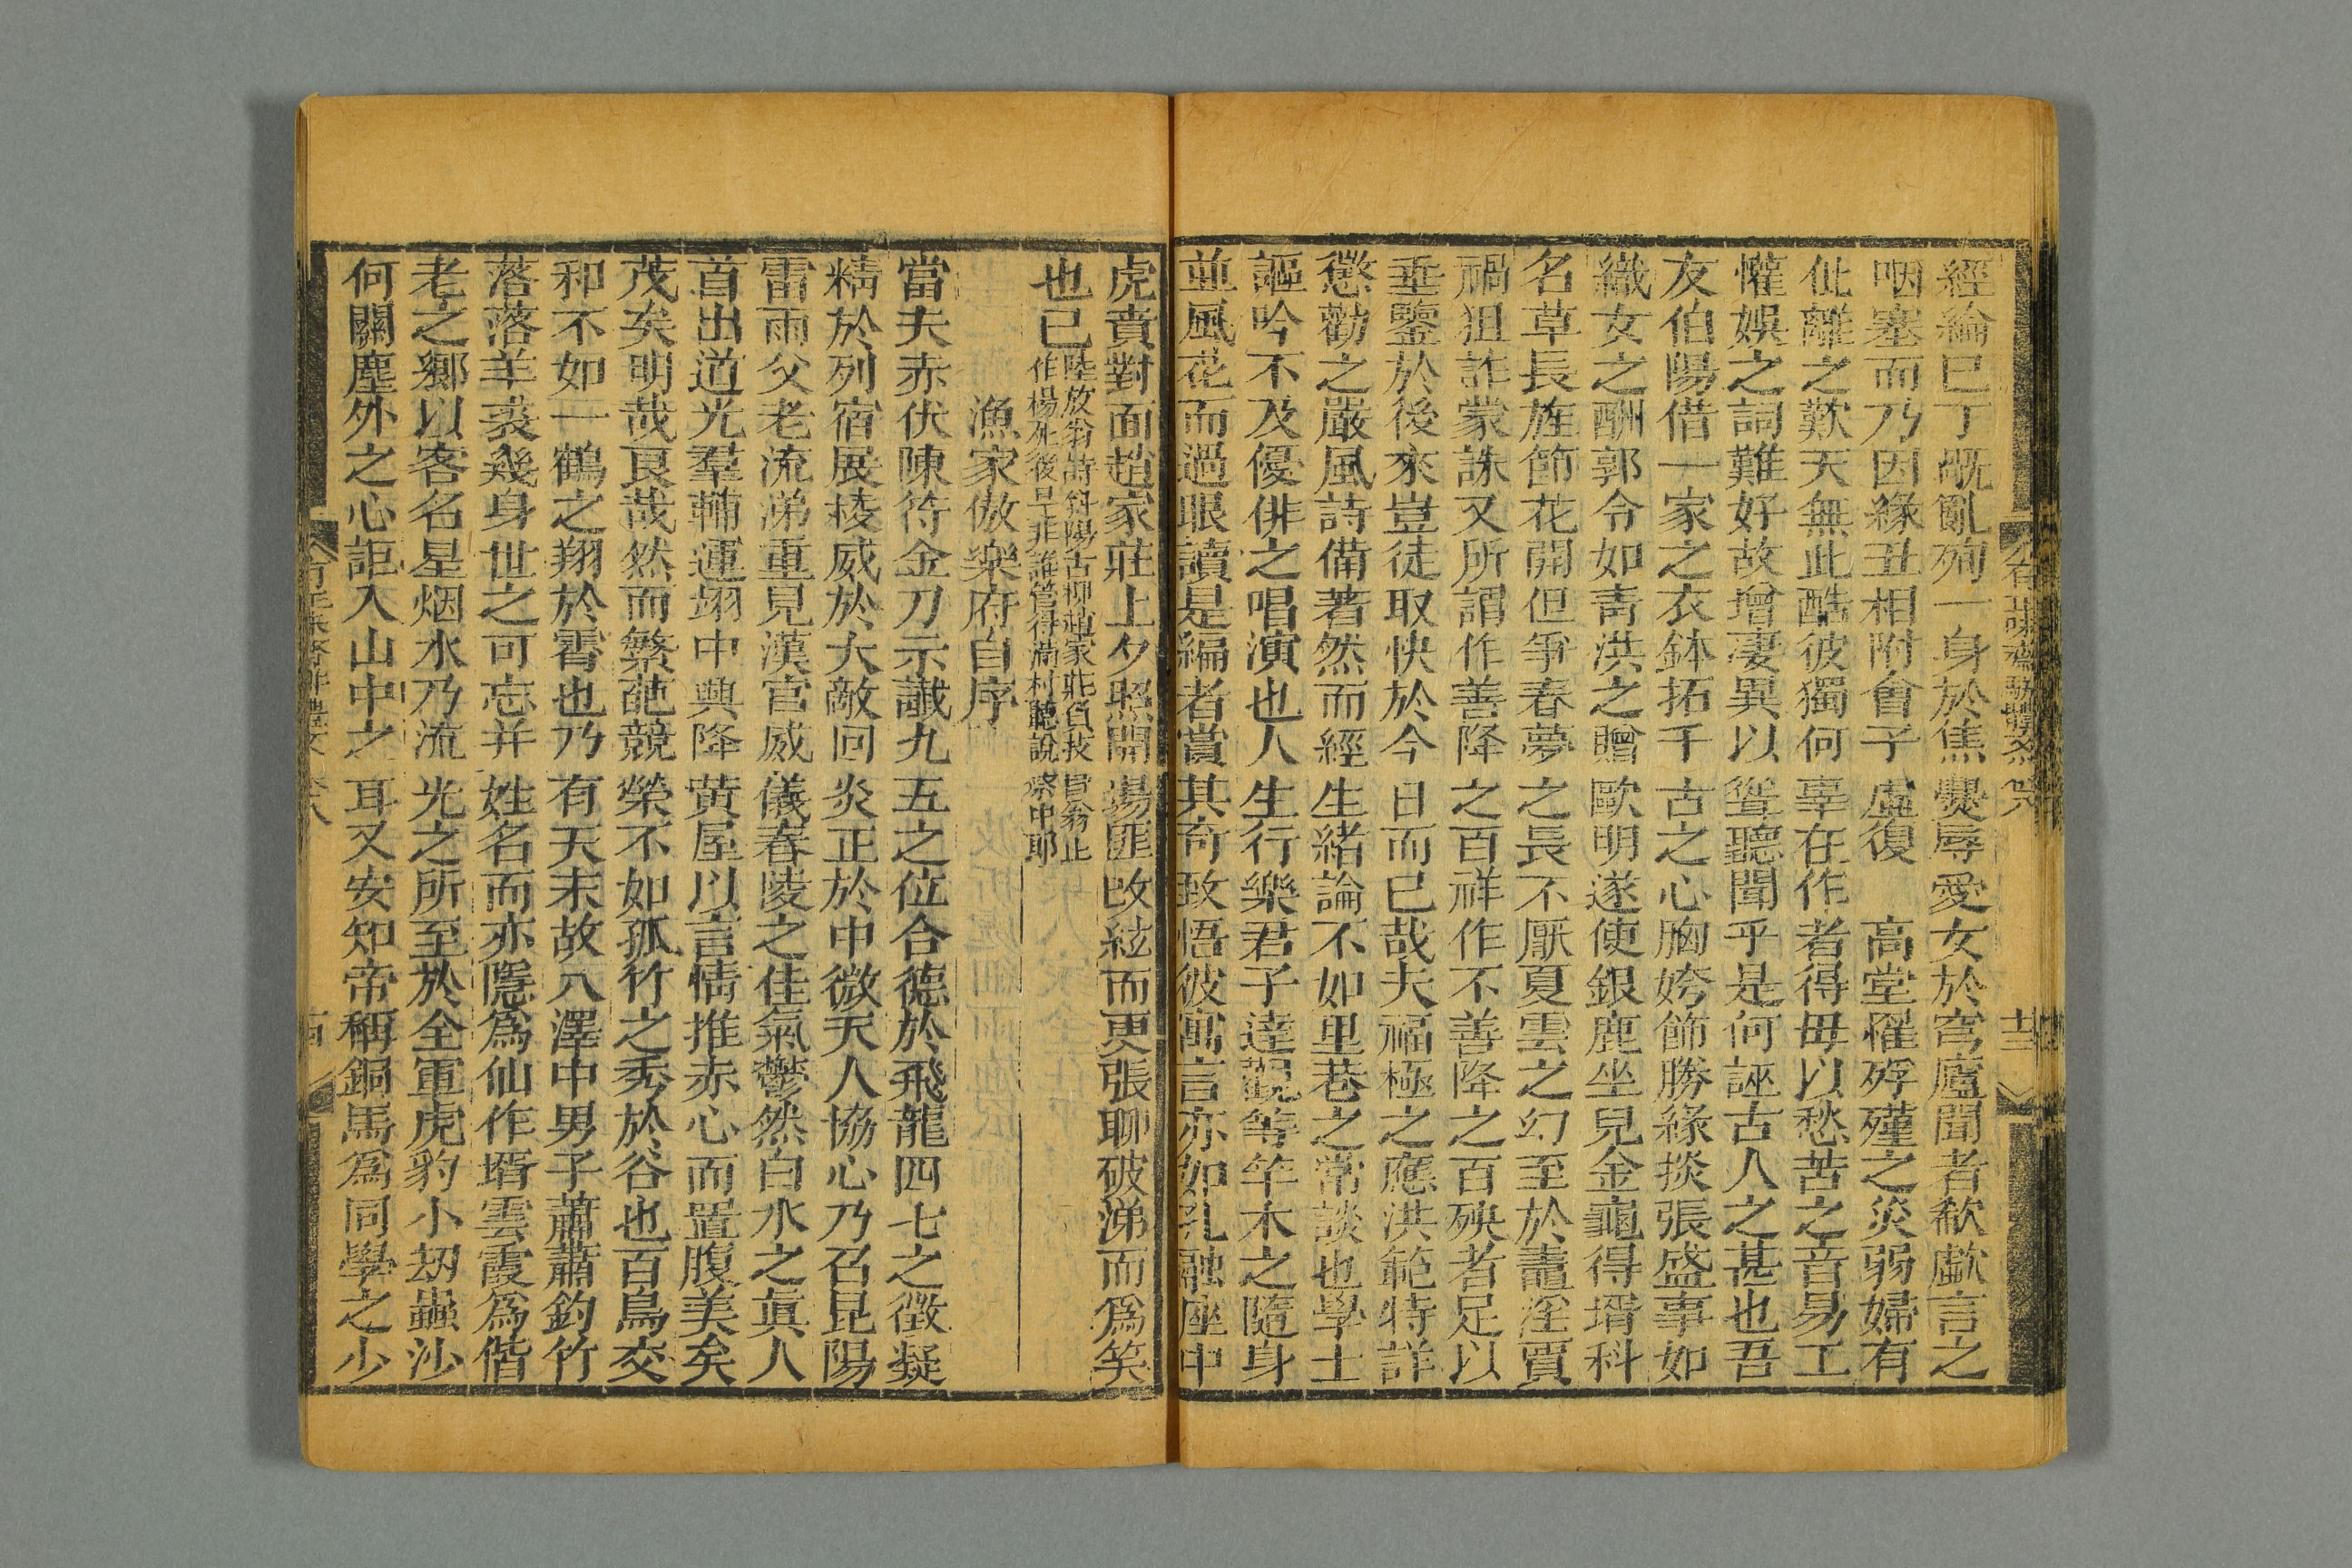 經綸已了旣亂殉一身於焦爨辱愛女於穹廬聞者欷歔言之
咽塞而乃因緣丑相附會子虛復 高堂罹殍殣之災弱婦有
仳離之歎天無此酷彼獨何辜在作者得毋以愁苦之音易工
懽娛之詞難好故增淒異以聳聽聞乎是何誣古人之甚也吾
友伯陽借一家之衣鉢拓千古之心胸姱節勝緣掞張盛事如
織女之酬郭令如靑洪之贈歐明遂使銀鹿坐兒金龜得壻科
名草長旌節花開但爭春夢之長不厭夏雲之幻至於讟淫賈
禍狙詐蒙誅又所謂作善降之百祥作不善降之百殃者足以
垂鑒於後來豈徒取快於今日而已哉夫福極之應洪範特詳
懲勸之嚴風詩備著然而經生緒論不如里巷之常談也學士
謳吟不及優俳之唱演也人生行樂君子達觀等竿木之隨身
並風花而過眼讀是編者賞其奇致悟彼寓言亦如孔融座中
有正味齋駢體文 卷八 十三
虎賁對面趙家莊上夕照開場匪改絃而更張聊破涕而爲笑
也已
陸放翁詩斜陽古柳趙家莊負鼓盲翁正
作場死後是非誰管得滿村聽說蔡中郎
漁家傲樂府自序
當夫赤伏陳符金刀示讖九五之位合德於飛龍四七之徵凝
精於列宿展稜威於大敵回炎正於中微天人協心乃召昆陽
雷雨父老流涕重見漢官威儀春陵之佳氣鬱然白水之眞人
首出道光羣輔運翊中興降黃屋以言情推赤心而置腹美矣
茂矣明哉良哉然而繁葩競榮不如孤竹之秀於谷也百鳥交
和不如一鶴之翔於霄也乃有天末故人澤中男子蕭蕭釣竹
落落羊裘幾身世之可忘并姓名而亦隱爲仙作壻雲霞爲偕
老之鄉以客名星烟水乃流光之所至於全軍虎豹小劫蟲沙
何關塵外之心詎入山中之耳又安知帝稱銅馬爲同學之少
有正味齋駢體文 卷八 十四